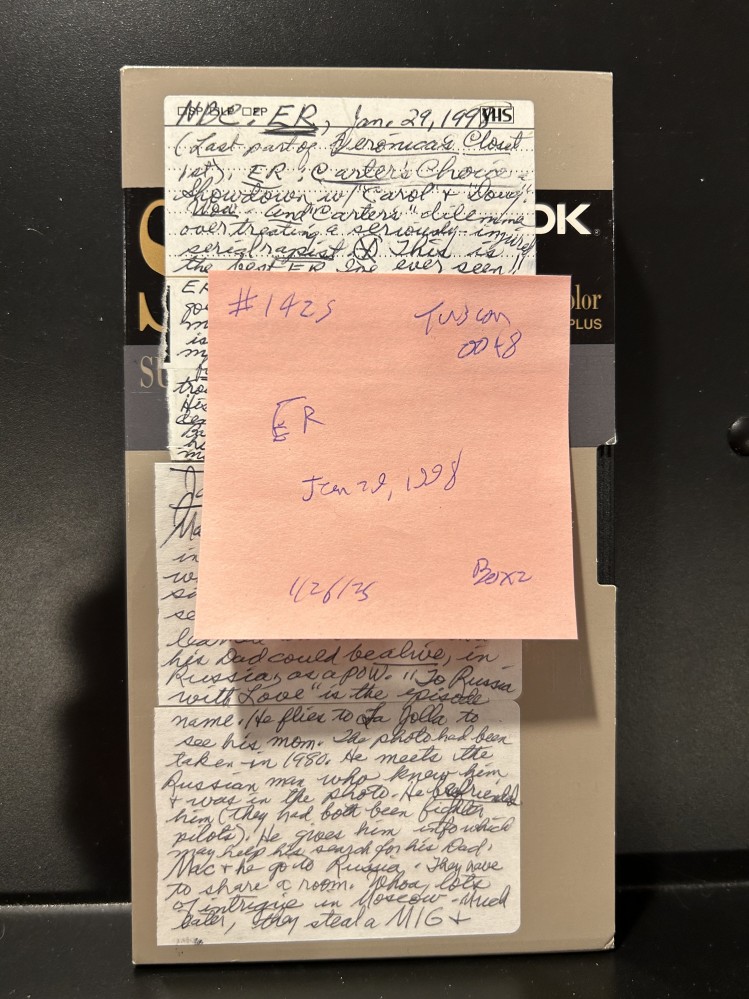 □SP □SLP □EP VHS
NBC: ER, Jan. 29, 1998
(Last part of Veronica's Closet
1st), ER: Carter's Choice -
Showdown w/ "Carol & Doug".
Wow - And "Carter's" dilemma
over treating a seriously-injured
serial rapist. This is
the best ER I've ever seen!!
DK
S
olor
PLUS
SU
ER
is
tro
His
Ba
#1425
0048
ER
Jan 29, 1998
1/26/25
Box 2
Ma
in
si
se
his Dad could be alive, in
Russia, as a POW. "To Russia
with Love" is the episode
name. He flies to La Jolla to
see his mom. The photo had been
taken in 1980. He meets the
Russian man who knew him
& was in the photo. He befriends
him (they had both been fighter
pilots). He gives him info which
may help his search for his Dad.
Mac & he go to Russia. They have
to share a room. Whoa, lots
of intrigue in Moscow. Much
later, they steal a MIG &